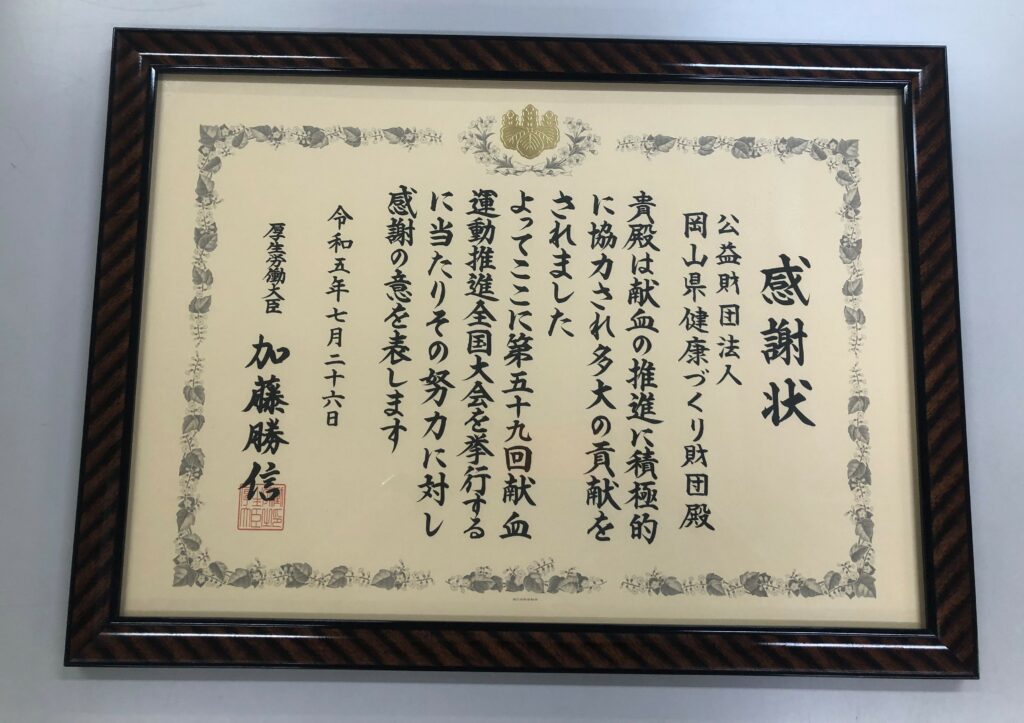 感謝状
公益財団法人
岡山県健康づくり財団殿
貴殿は献血の推進に積極的
に協力され多大の貢献を
されました
よってここに第五十九回献血
運動推進全国大会を挙行する
に当たりその努力に対し
感謝の意を表します
令和五年七月二十六日
厚生労働大臣 加藤勝信